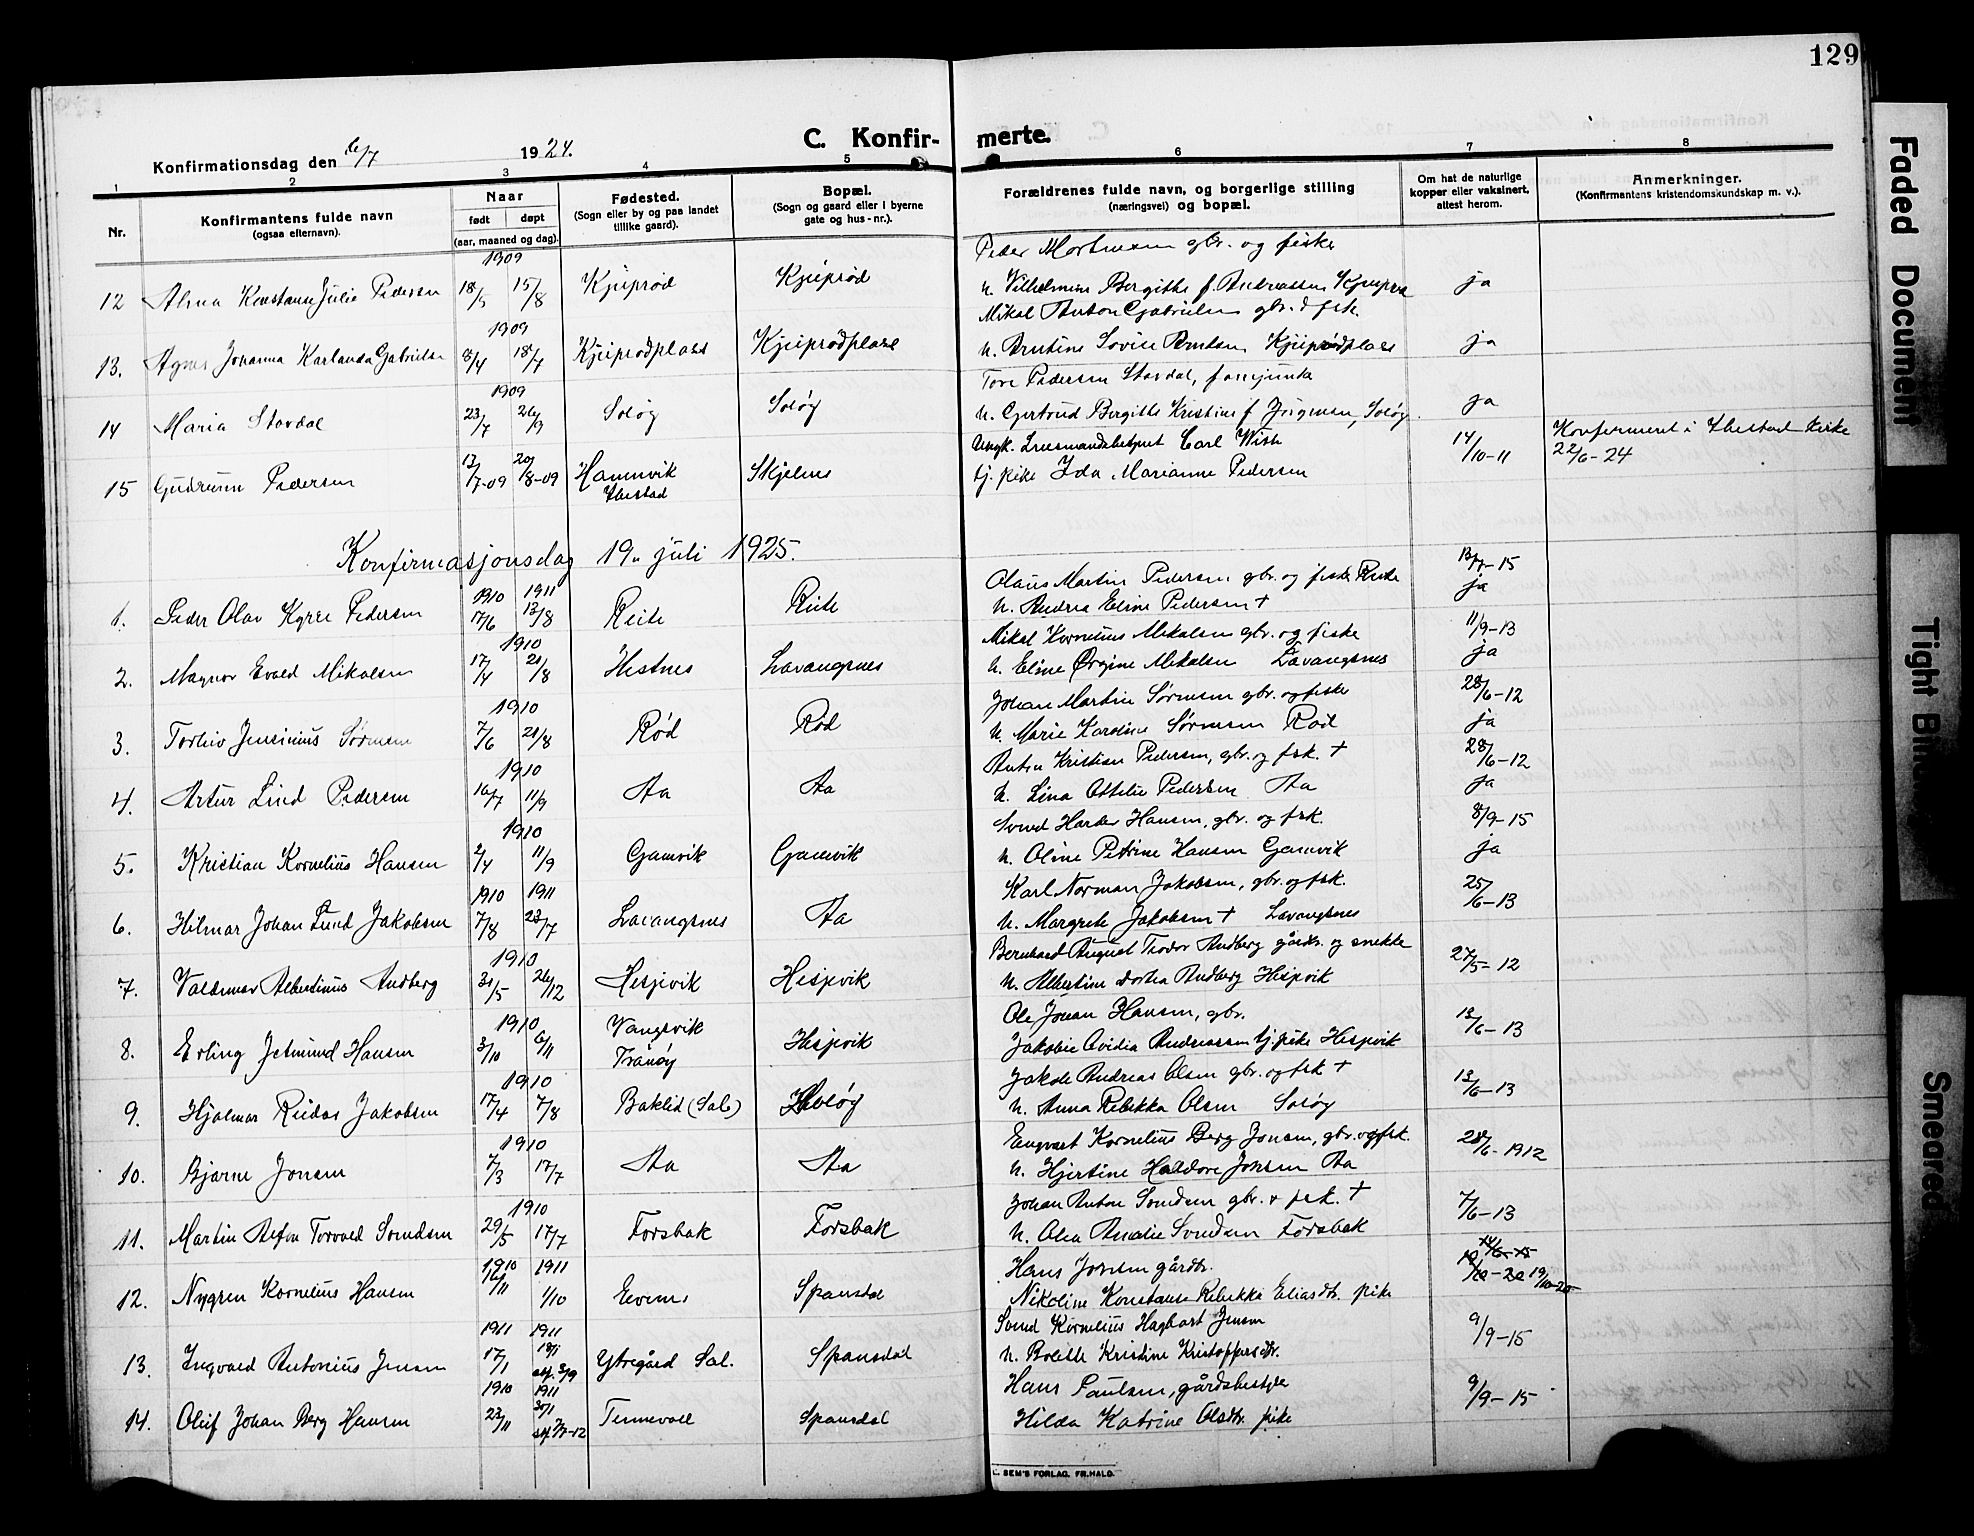 129
Konfirmationsdag den 6/7 1924.
C. Konfir- merte.
1 2 3 4 5 6 7 8
Nr.
Konfirmantens fulde navn
(ogsaa efternavn).
Naar
født døpt
(aar, maaned og dag).
Fødested.
(Sogn eller by og paa landet
tillike gaard).
Bopæl.
(Sogn og gaard eller i byerne
gate og hus-nr.).
Forældrenes fulde navn, og borgerlige stilling
(næringsvei) og bopæl.
Om hat de naturlige
kopper eller vaksinert,
attest herom.
Anmerkninger.
(Konfirmantens kristendomskundskap m. v.).
1909 Peder Mortensen gbr. og fisker
12 Alma Konstanse Julie Pedersen 18/5 15/8 Kjeiprød Kjeiprød h. Vilhelmine Bergithe f. Andreassen Kjeiprød ja
1909 Mikal Anton Gabrielsen gbr. & fisk.
13. Agnes Johanna Karlanda Gabrielsen 8/4 18/7 Kjeiprødplass Kjeiprødplass h. Berntine Lovise Berntsen Kjeiprødplass ja
1909 Tore Pedersen Stordal,
14 Maria Stordal 23/7 26/9 Soløy Soløy h. Gertrud Bergitte Kristine f. Jørgensen, Soløy. ja
Ungk. Lensmandsbetjent Carl Wish 14/10-11 Konfirmert i Ibestad kirke
15 Gudrunn Pedersen 13/7-09 29/8-09 Hamnvik Ibestad Skjelnes tj. pike Ida Marianne Pedersen 22/6-24
Konfirmasjonsdag 19. juli 1925.
1910 1911 Olaus Martin Pedersen gbr. og fisker Reite 13/7-15
1. Peder Olav Kyrre Pedersen 17/6 13/8 Reite Reite h. Andrea Eline Pedersen + ja
1910 Mikal Kornelius Mikalsen gbr. og fisker 11/9-13
2. Magnor Evald Mikalsen 17/4 21/8 Hestnes Lavangsnes h. Eline Ørgine Mikalsen Lavangsnes ja
1910 Johan Martin Sørensen gbr. og fisker 28/6-12
3. Torleiv Jensinius Sørensen 7/6 21/8 Rød Rød h. Marie Karoline Sørensen Rød ja
1910 Anton Kristian Pedersen, gbr. og fsk. + 28/6-12
4. Artur Lind Pedersen 16/7 11/9 Aa Aa h. Lina Ottelie Pedersen Aa ja
1910 Svend Harder Hansen, gbr. og fsk. 8/9-15
5. Kristian Kornelius Hansen 2/4 11/9 Gamvik Gamvik h. Oline Petrine Hansen Gamvik ja
1910 1911 Karl Norman Jakobsen, gbr. og fsk. 25/6-13
6. Hilmar Johan Lund Jakobsen 7/8 23/7 Lavangsnes Aa h. Margrete Jakobsen + Lavangsnes
1910 Bernhard August Thodor Andberg gårdbr. og snekker
7. Valdemar Albertinus Andberg 31/5 26/12 Hesjevik Hesjevik h. Albertine Dortea Andberg Hesjevik 27/5-12
1910 Ole Johan Hansen, gbr.
8. Erling Jetmund Hansen 3/10 6/11 Vangsvik Tranøy Hesjevik Jakobie Ovidia Andreassen tj. pike Hesjevik 13/6-13
1910 Jakob Andreas Olsen gbr. og fsk +
9. Hjalmar Reidar Jakobsen 17/4 7/8 Baklid (Sal.) Soløy h. Anna Rebekka Olsen Soløy 13/6-13
1910 Engvart Kornelius Berg Jonsen, gbr. og fsk.
10. Bjarne Jonsen 7/3 17/7 Aa Aa h. Hjertine Haldora Jonsen Aa 28/6-1912
1910 Johan Anton Svendsen gbr. & fsk. +
11. Martin Alfon Torvald Svendsen 29/5 17/7 Forsbak Forsbak h. Olea Amalie Svendsen Forsbak 7/6-13
1910 1911 Hans Jonsen gårdbr.
12. Nygren Kornelius Hansen 16/11 1/10 Evenes Spansdal Nikoline Konstanse Rebekka Eliasdtr. pike 19/10-25
1911 1911 Svend Kornelius Hagbart Jensen
13. Ingvald Antonius Jensen 17/1 Ytregård Sal. Spansdal h. Bolette Kristine Kristoffersdtr. 9/9-15
1910 1911 Hans Paulsen, gårdsbestyrer
14. Oluf Johan Berg Hansen 23/11 30/1 Tennevoll Spansdal Hilda Katrine Olsdtr. pike 9/9-15
E. SEM'S FORLAG, FR.HALD.
Faded Document
Tight Bin
Smeared